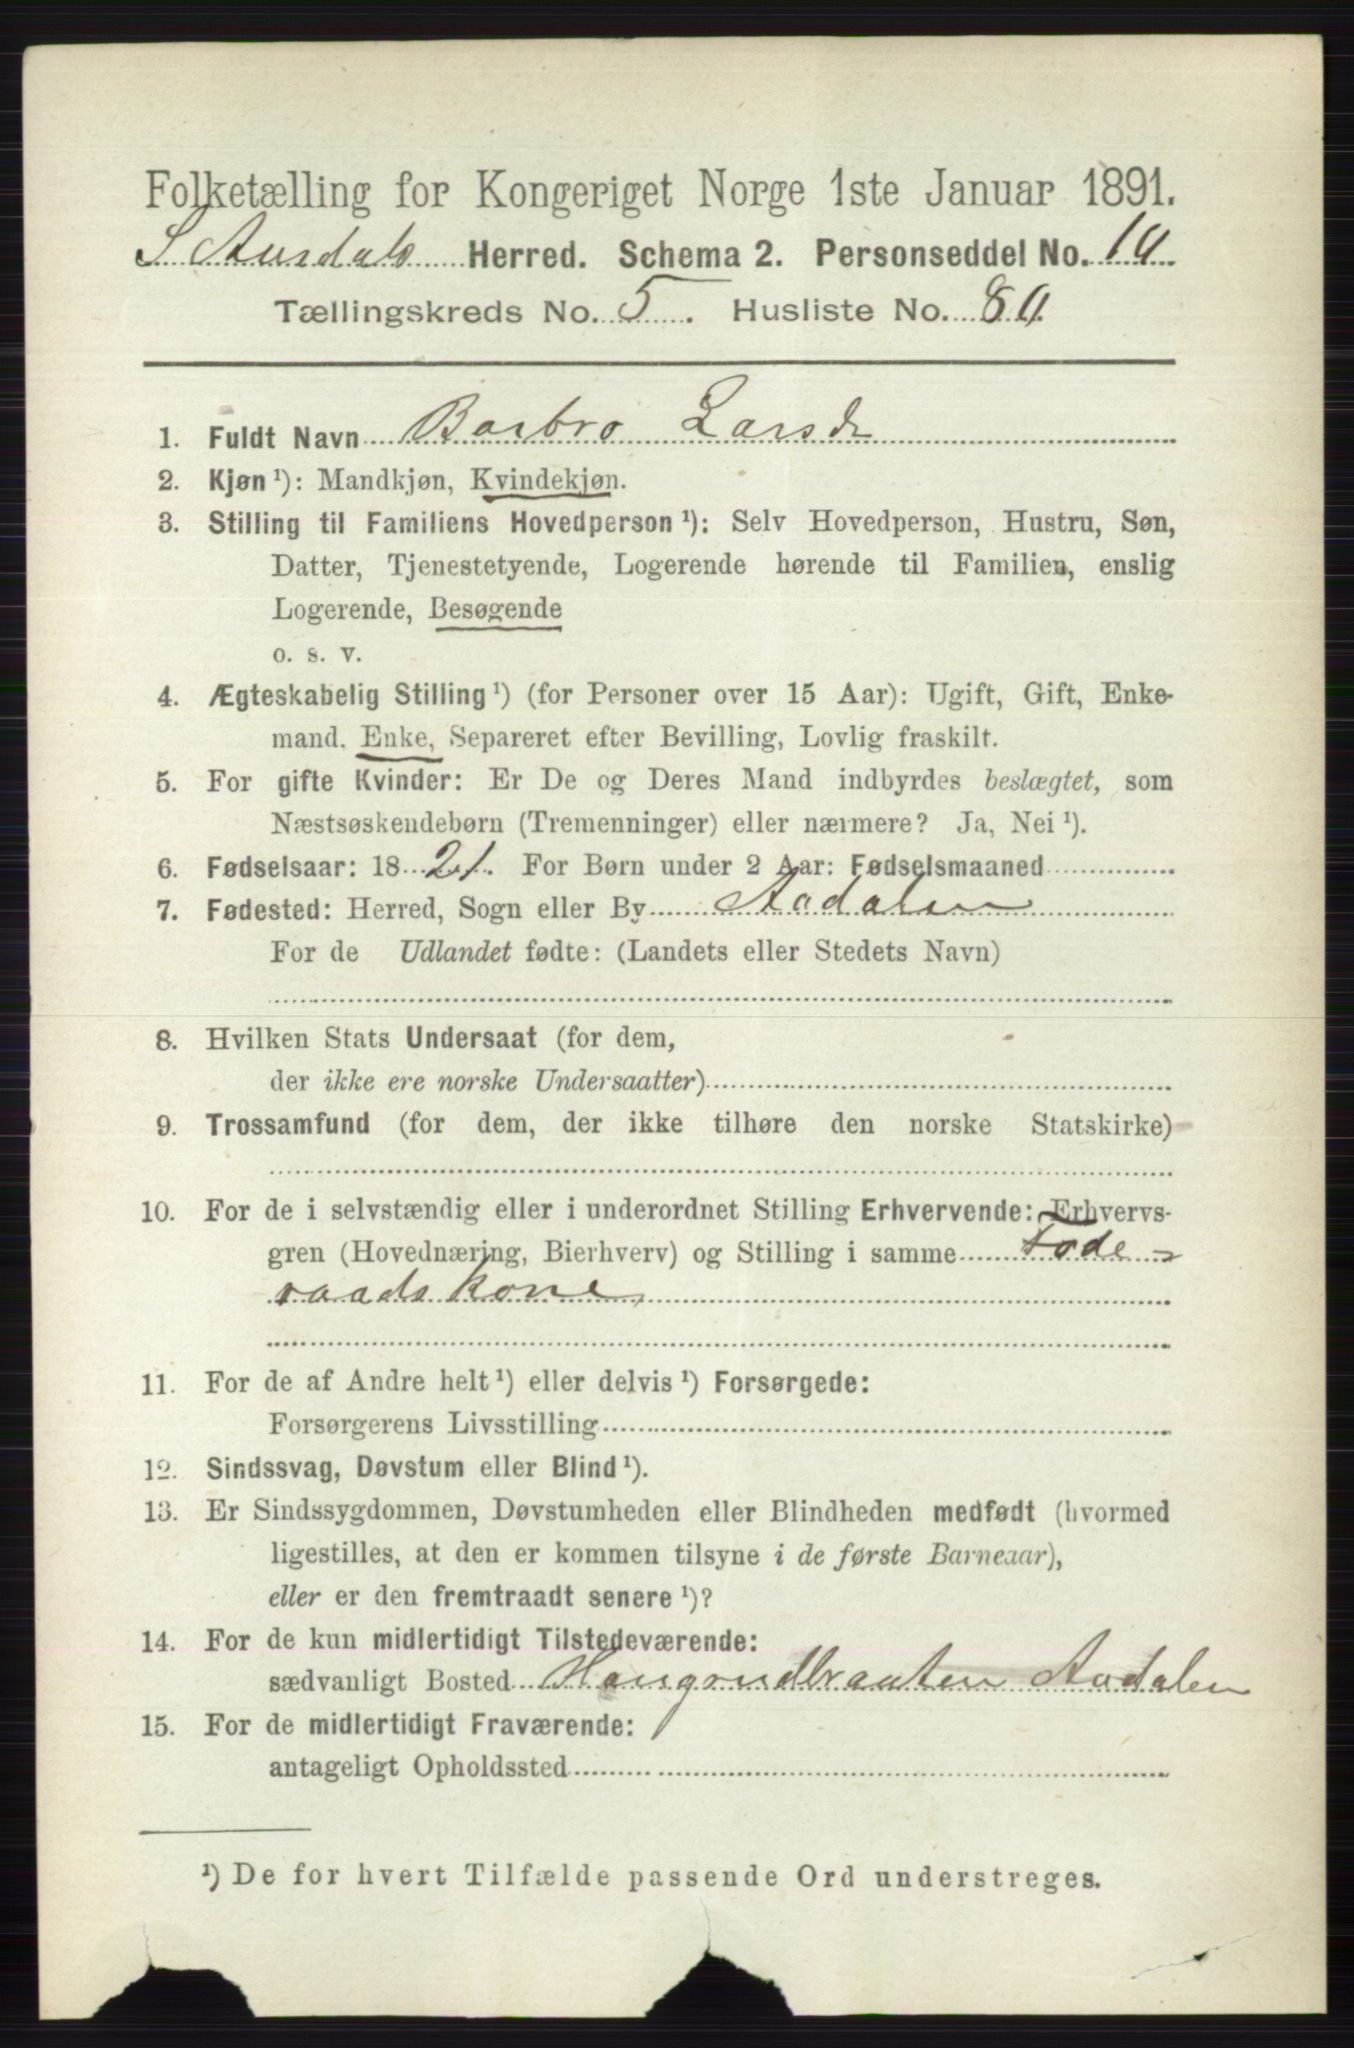 Folketælling for Kongeriget Norge 1ste Januar 1891.
S Aurdals Herred. Schema 2. Personseddel No. 10
Tællingskreds No. 5. Husliste No. 80.
1. Fuldt Navn Barbro Larsdr
2. Kjøn¹): Mandkjøn, Kvindekjøn.
3. Stilling til Familiens Hovedperson¹): Selv Hovedperson, Hustru, Søn,
Datter, Tjenestetyende, Logerende hørende til Familien, enslig
Logerende, Besøgende
o. s. v.
4. Ægteskabelig Stilling¹) (for Personer over 15 Aar): Ugift, Gift, Enke-
mand. Enke, Separeret efter Bevilling, Lovlig fraskilt.
5. For gifte Kvinder: Er De og Deres Mand indbyrdes beslægtet, som
Næstsøskendebørn (Tremenninger) eller nærmere? Ja, Nei¹).
6. Fødselsaar: 1821. For Børn under 2 Aar: Fødselsmaaned
7. Fødested: Herred, Sogn eller By Aadalen
For de Udlandet fødte: (Landets eller Stedets Navn)
8. Hvilken Stats Undersaat (for dem,
der ikke ere norske Undersaatter)
9. Trossamfund (for dem, der ikke tilhøre den norske Statskirke)
10. For de i selvstændig eller i underordnet Stilling Erhvervende: Erhvervs-
gren (Hovednæring, Bierhverv) og Stilling i samme Føde-
raadskone
11. For de af Andre helt¹) eller delvis¹) Forsørgede:
Forsørgerens Livsstilling
12. Sindssvag, Døvstum eller Blind¹).
13. Er Sindssygdommen, Døvstumheden eller Blindheden medfødt (hvormed
ligestilles, at den er kommen tilsyne i de første Barneaar),
eller er den fremtraadt senere¹)?
14. For de kun midlertidigt Tilstedeværende:
sædvanligt Bosted Aadalen
15. For de midlertidigt Fraværende:
antageligt Opholdssted
¹) De for hvert Tilfælde passende Ord understreges.